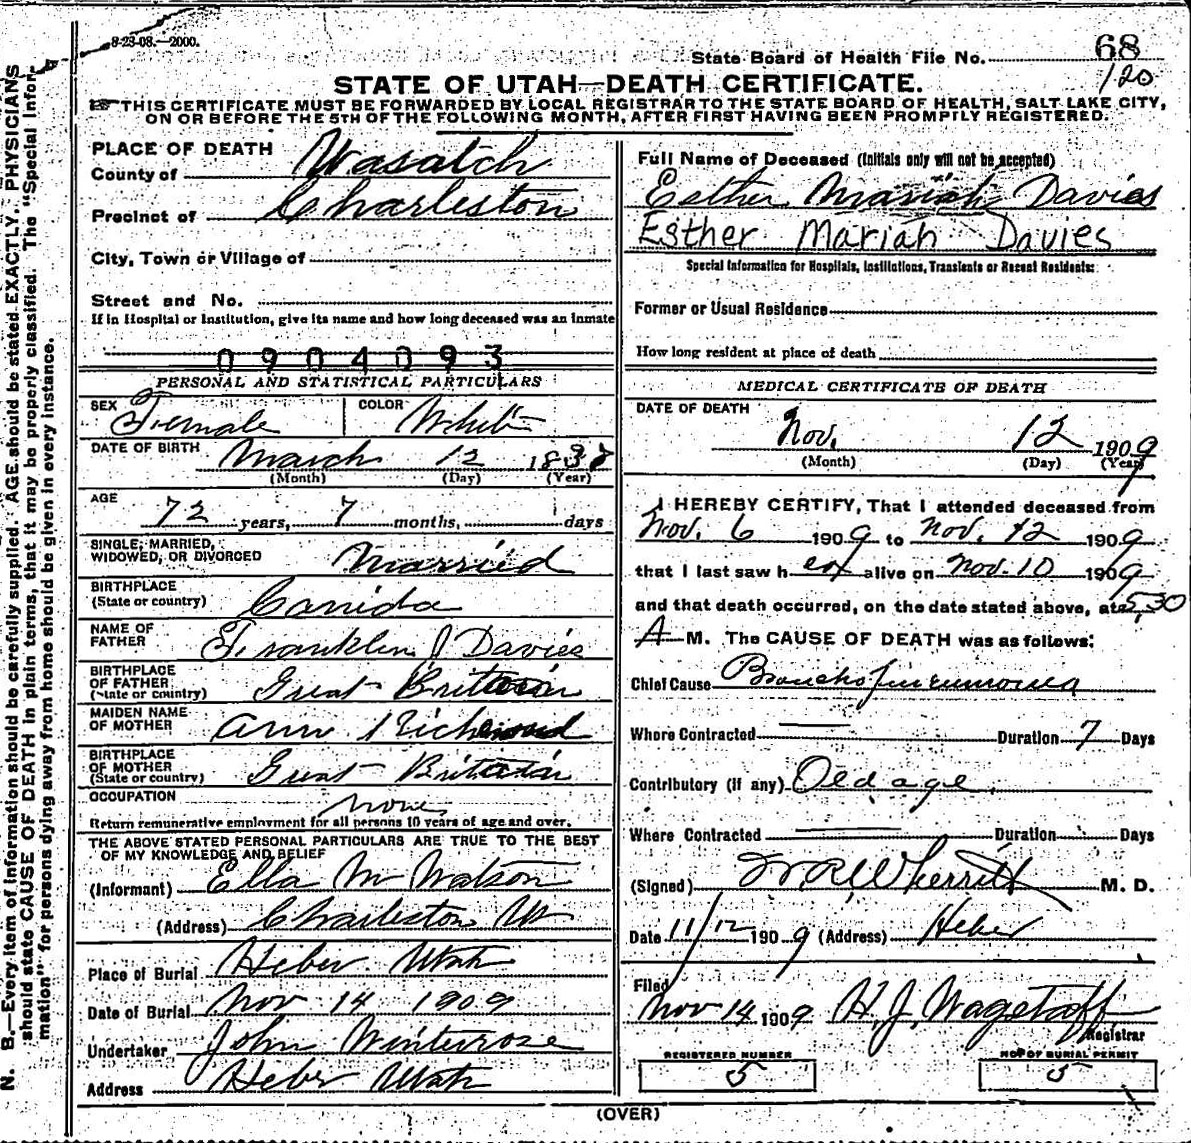 8-23-08.—2000.
State Board of Health File No. 68
120
STATE OF UTAH—DEATH CERTIFICATE.
THIS CERTIFICATE MUST BE FORWARDED BY LOCAL REGISTRAR TO THE STATE BOARD OF HEALTH, SALT LAKE CITY,
ON OR BEFORE THE 5TH OF THE FOLLOWING MONTH, AFTER FIRST HAVING BEEN PROMPTLY REGISTERED.
N. B.—Every item of information should be carefully supplied. AGE should be stated EXACTLY. PHYSICIANS
should state CAUSE OF DEATH in plain terms, that it may be properly classified. The "Special Infor-
mation" for persons dying away from home should be given in every instance.
PLACE OF DEATH
County of Wasatch
Precinct of Charleston
City, Town or Village of
Street and No.
If in Hospital or Institution, give its name and how long deceased was an inmate
0904093
PERSONAL AND STATISTICAL PARTICULARS
SEX Female COLOR White
DATE OF BIRTH March 12 183
(Month) (Day) (Year)
AGE
72 years, 7 months, days
SINGLE, MARRIED,
WIDOWED, OR DIVORCED Married
BIRTHPLACE
(State or country) Canida
NAME OF
FATHER Franklin J Davies
BIRTHPLACE
OF FATHER
(State or country) Great Brittain
MAIDEN NAME
OF MOTHER Ann
BIRTHPLACE
OF MOTHER
(State or country) Great Britain
OCCUPATION none
Return remunerative employment for all persons 10 years of age and over.
THE ABOVE STATED PERSONAL PARTICULARS ARE TRUE TO THE BEST
OF MY KNOWLEDGE AND BELIEF
(Informant) Ella M Watson
(Address) Charleston Ut
Place of Burial Heber Utah
Date of Burial Nov 14 1909
Undertaker John Winterose
Address Heber Utah
Full Name of Deceased (Initials only will not be accepted)
Esther Mariah Davies
Esther Mariah Davies
Special Information for Hospitals, Institutions, Transients or Recent Residents:
Former or Usual Residence
How long resident at place of death
MEDICAL CERTIFICATE OF DEATH
DATE OF DEATH
Nov. 12 1909
(Month) (Day) (Year)
I HEREBY CERTIFY, That I attended deceased from
Nov. 6 1909 to Nov. 12 1909
that I last saw her alive on Nov. 10 1909
and that death occurred, on the date stated above, at 5,30
A M. The CAUSE OF DEATH was as follows:
Chief Cause Broncho pneumonia
Where Contracted Duration 7 Days
Contributory (if any) Old age
Where Contracted Duration Days
(Signed) W R Wherritt M. D.
Date 11/12 1909 (Address) Heber
Filed
Nov 14 1909 H. J. Wagstaff
Registrar
REGISTERED NUMBER
5
NO. OF BURIAL PERMIT
5
(OVER)